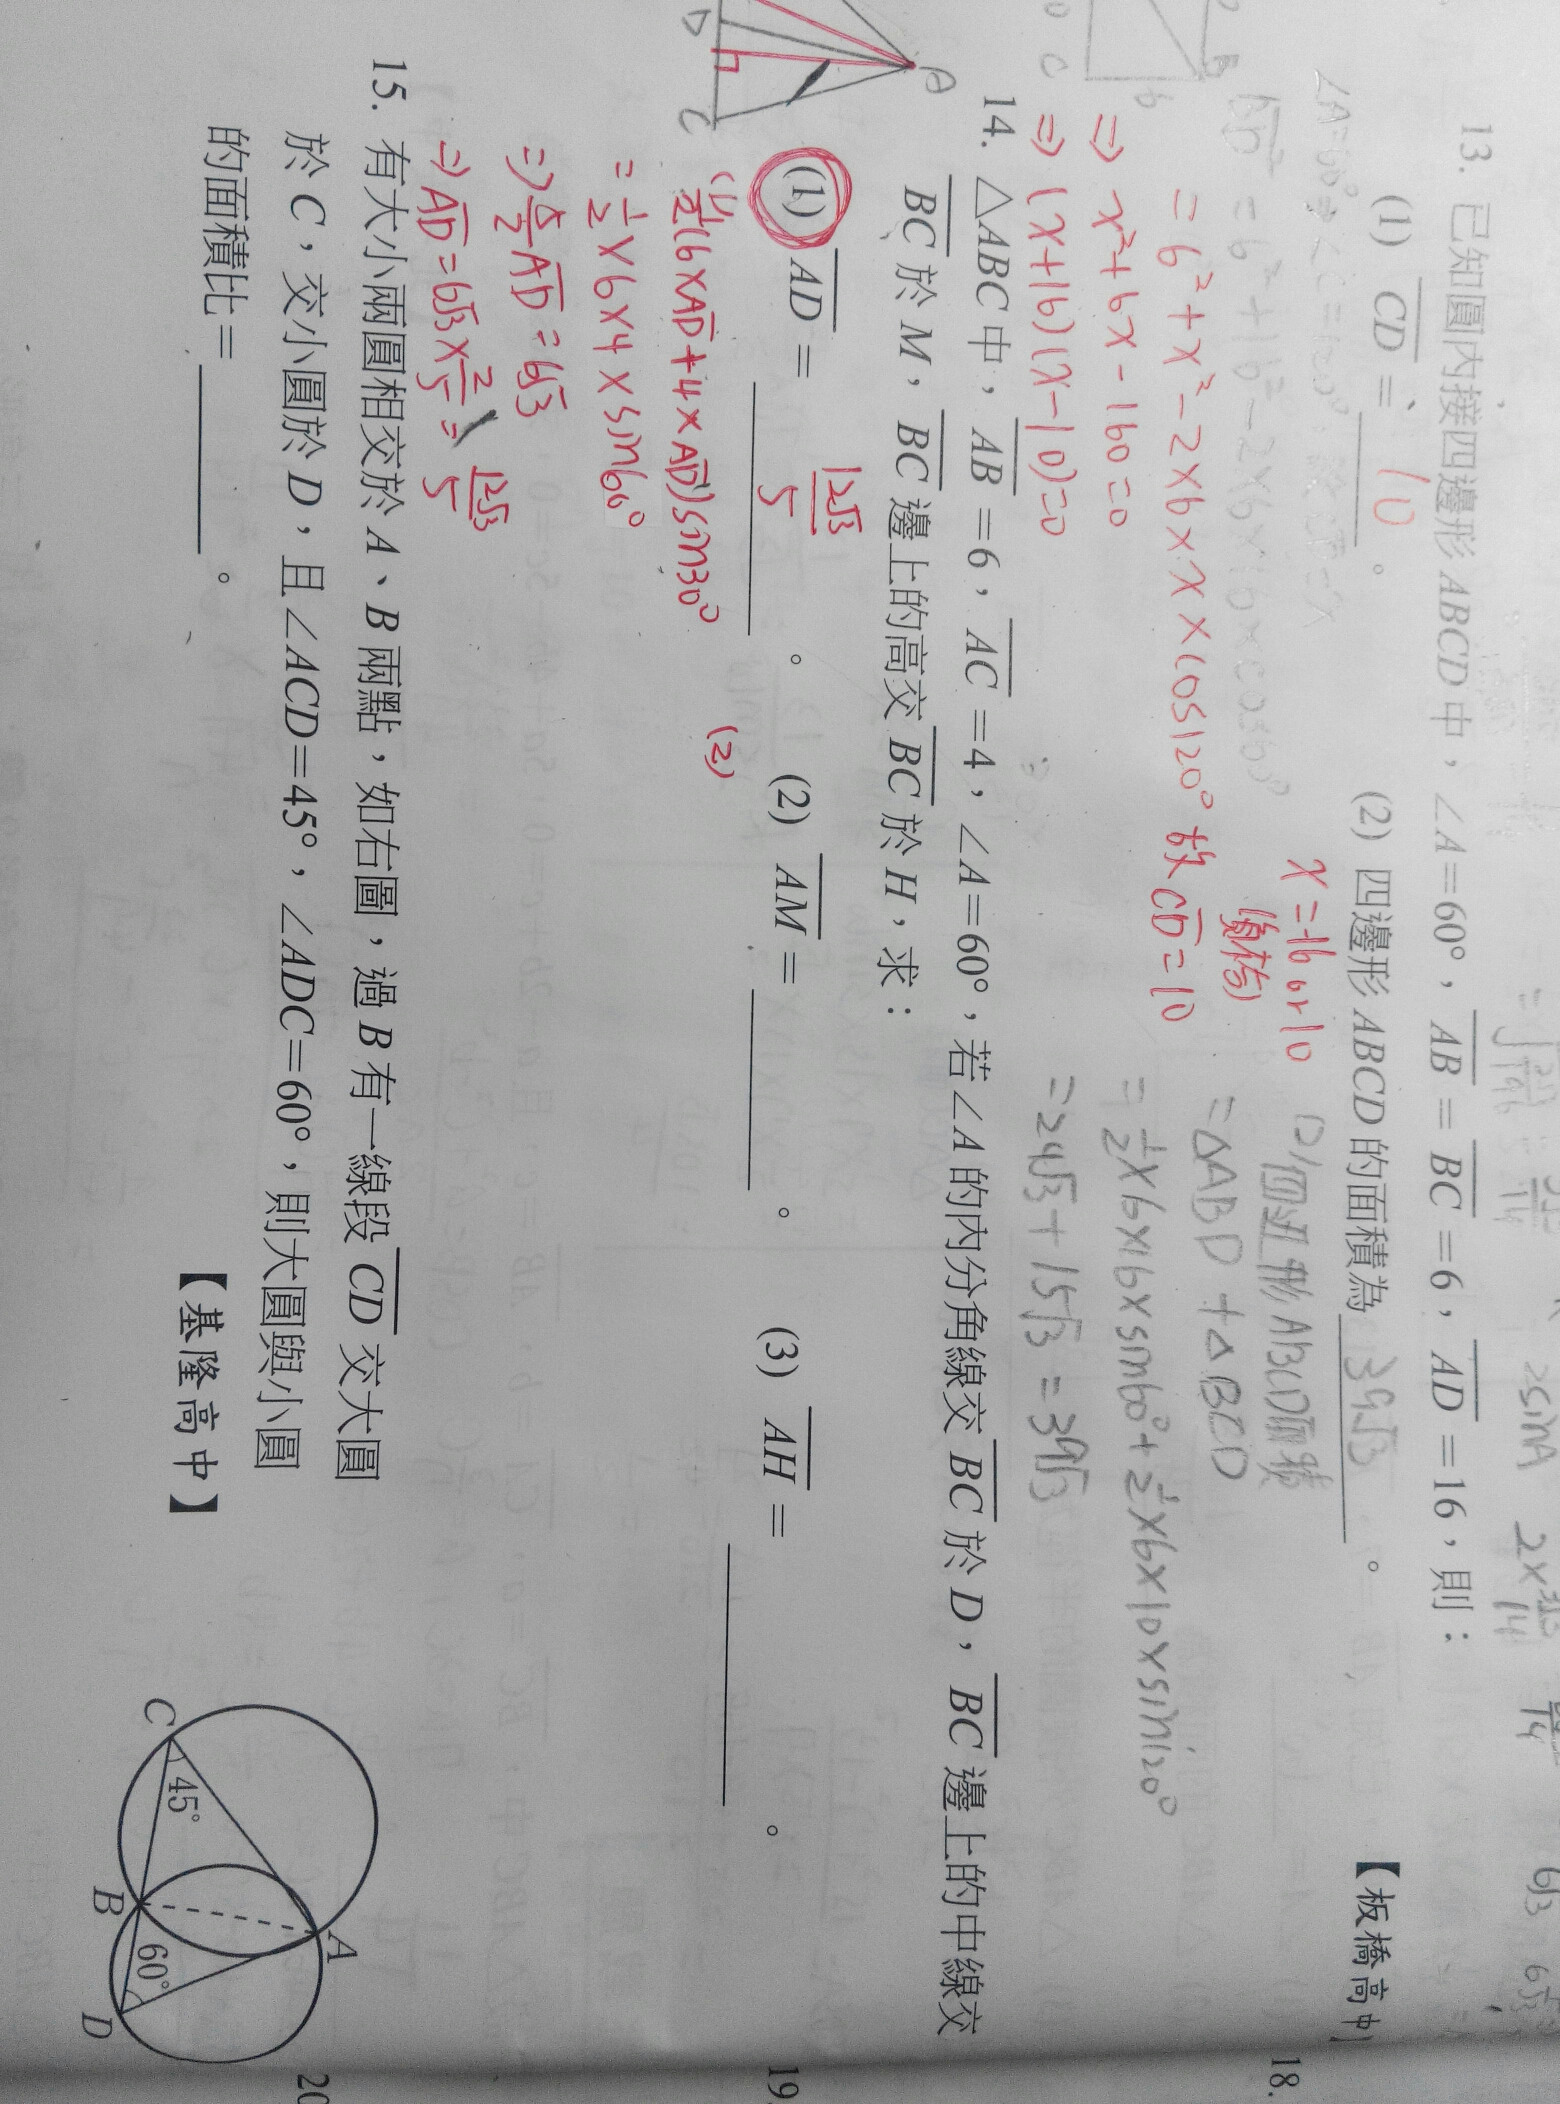 13. 已知圓內接四邊形ABCD中，∠A=60°，AB=BC=6，AD=16，則：
(1) CD = 10 。 (2) 四邊形ABCD的面積為 39√3 。 【板橋高中】
=6²+x²-2×6×x×cos120° 故CD=10
⇒ x²+6x-160=0
⇒ (x+16)(x-10)=0
x=-16 or 10
(負不合)
(2) 四邊形ABCD面積
=△ABD+△BCD
=1/2×6×16×sin60°+1/2×6×10×sin120°
=24√3+15√3=39√3
14. △ABC中，AB=6，AC=4，∠A=60°，若∠A的內分角線交BC於D，BC邊上的中線交
BC於M，BC邊上的高交BC於H，求：
(1) AD = 12√3/5 。 (2) AM = 。 (3) AH = 。
(1) 1/2(6×AD+4×AD)sin30°
=1/2×6×4×sin60°
⇒ 5/2 AD=6√3
⇒ AD=6√3×2/5=12√3/5
(2)
A
D
C
15. 有大小兩圓相交於A、B兩點，如右圖，過B有一線段CD交大圓
於C，交小圓於D，且∠ACD=45°，∠ADC=60°，則大圓與小圓
的面積比= 。 【基隆高中】
A
C
45°
B
60°
D
18.
19.
20